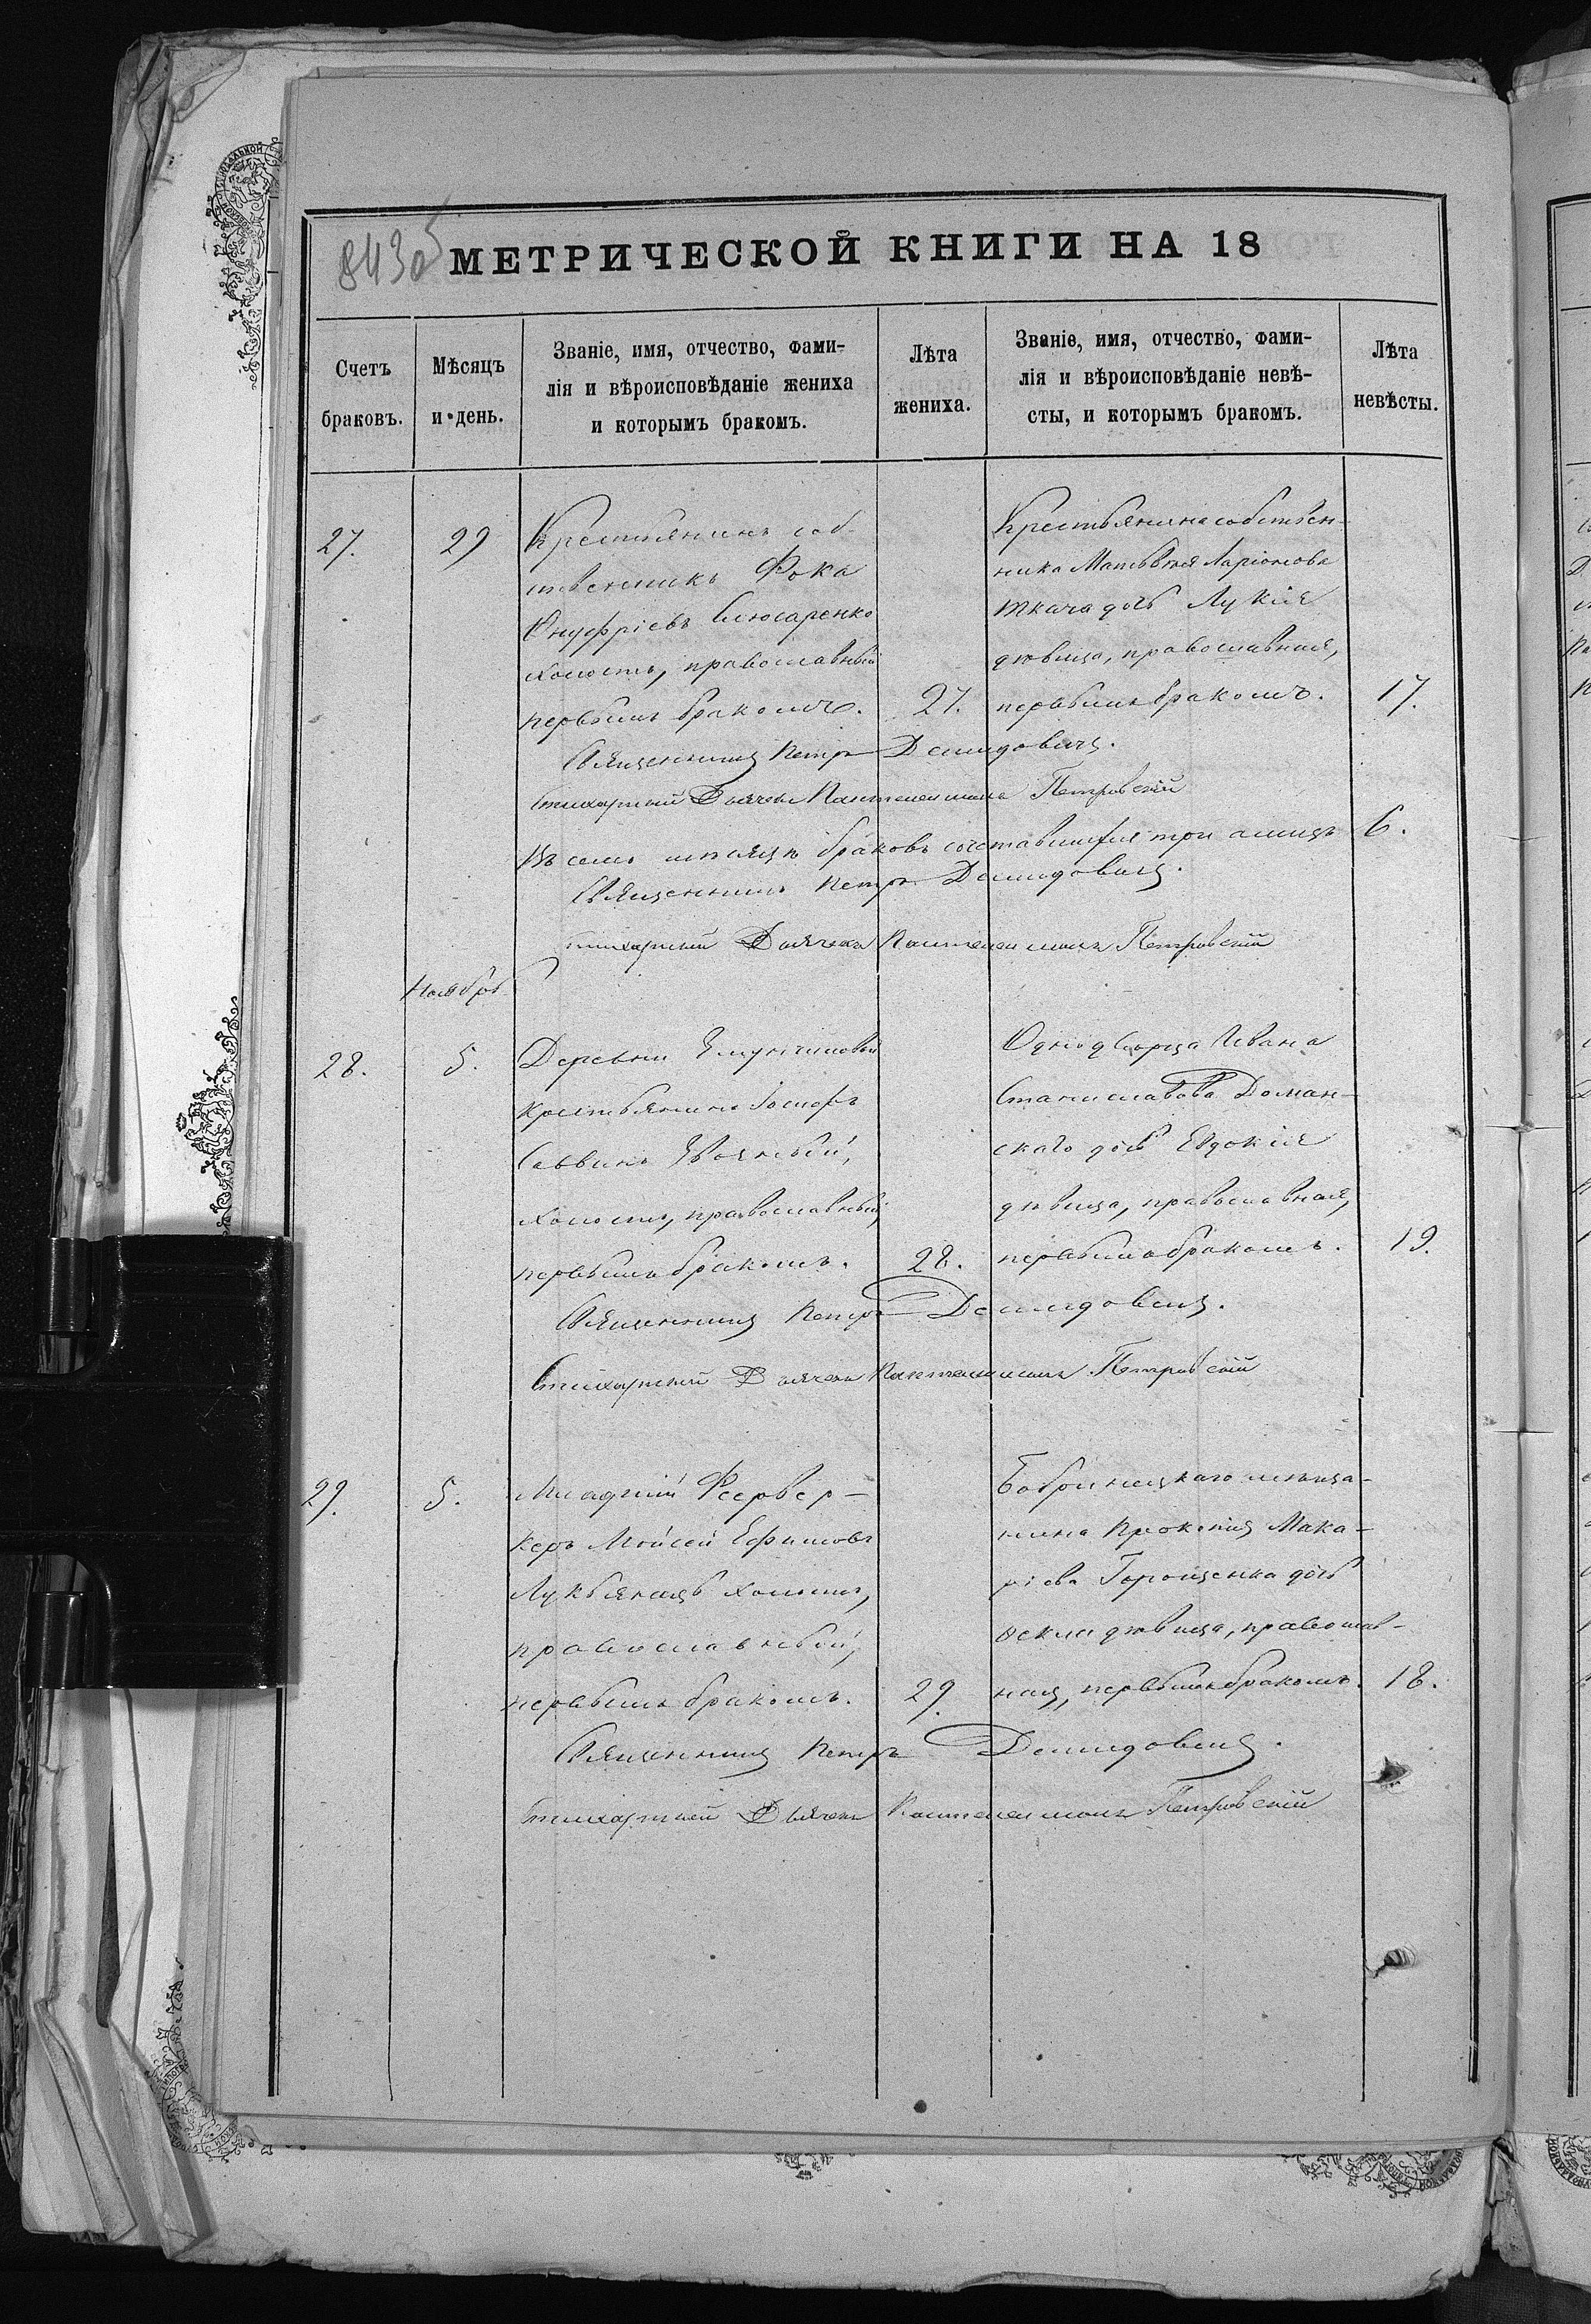 8430
МЕТРИЧЕСКОЙ КНИГИ НА 18
Счетъ браковъ.
Мѣсяцъ и день.
Званіе, имя, отчество, фами-
лія и вѣроисповѣданіе жениха
и которымъ бракомъ.
Лѣта жениха.
Званіе, имя, отчество, фами-
лія и вѣроисповѣданіе невѣ-
сты, и которымъ бракомъ.
Лѣта невѣсты.
27.
29
Крестьянинъ соб-
ственникъ Фока
Онуфріевъ Слюсаренко
холостъ, православный
первымъ бракомъ.
27.
Крестьянина собствен-
ника Матвѣя Ларіонова
Ткача дочь Лукія
дѣвица, православная,
первымъ бракомъ.
17.
Священникъ Петръ Демидовичъ.
Стихарный Дьячекъ Пантелеимонъ Петровскій
Въ семъ мѣсяцѣ браковъ составившихся три а лицъ 6.
Священникъ Петръ Демидовичъ.
Стихарный Дьячекъ Пантелеимонъ Петровскій
Ноябрь
28.
5.
Деревни
крестьянинъ Іосифъ
Саввинъ
холостъ, православный,
первымъ бракомъ.
28.
Однодворца Ивана
Станиславова Доман-
скаго дочь Евдокія
дѣвица, православная,
первымъ бракомъ.
19.
Священникъ Петръ Демидовичъ.
Стихарный Дьячекъ Пантелеимонъ Петровскій
29.
5.
Младшій Феервер-
керъ Мойсей Ефимовъ
Лукьянецъ холостъ,
православный,
первымъ бракомъ.
29.
Бобринецкаго мѣща-
нина Прокопія Мака-
ріева Горощенка дочь
Ѳекла дѣвица, православ-
ная, первымъ бракомъ.
18.
Священникъ Петръ Демидовичъ.
Стихарный Дьячекъ Пантелеимонъ Петровскій